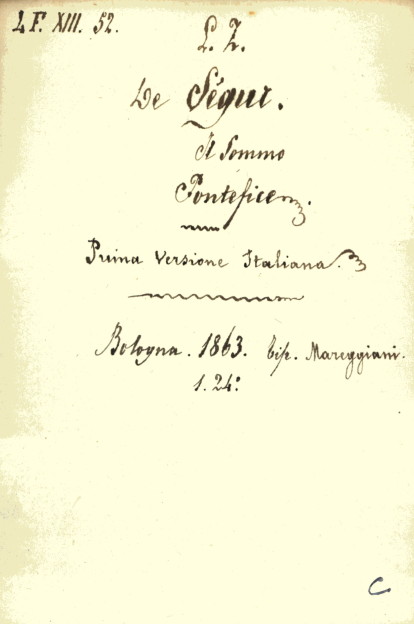 L F. XIII. 52.
L. Z.
De Ségur.
Il Sommo
Pontefice.
Prima Versione Italiana.
Bologna. 1863. tip. Mareggiani.
1. 24:
C